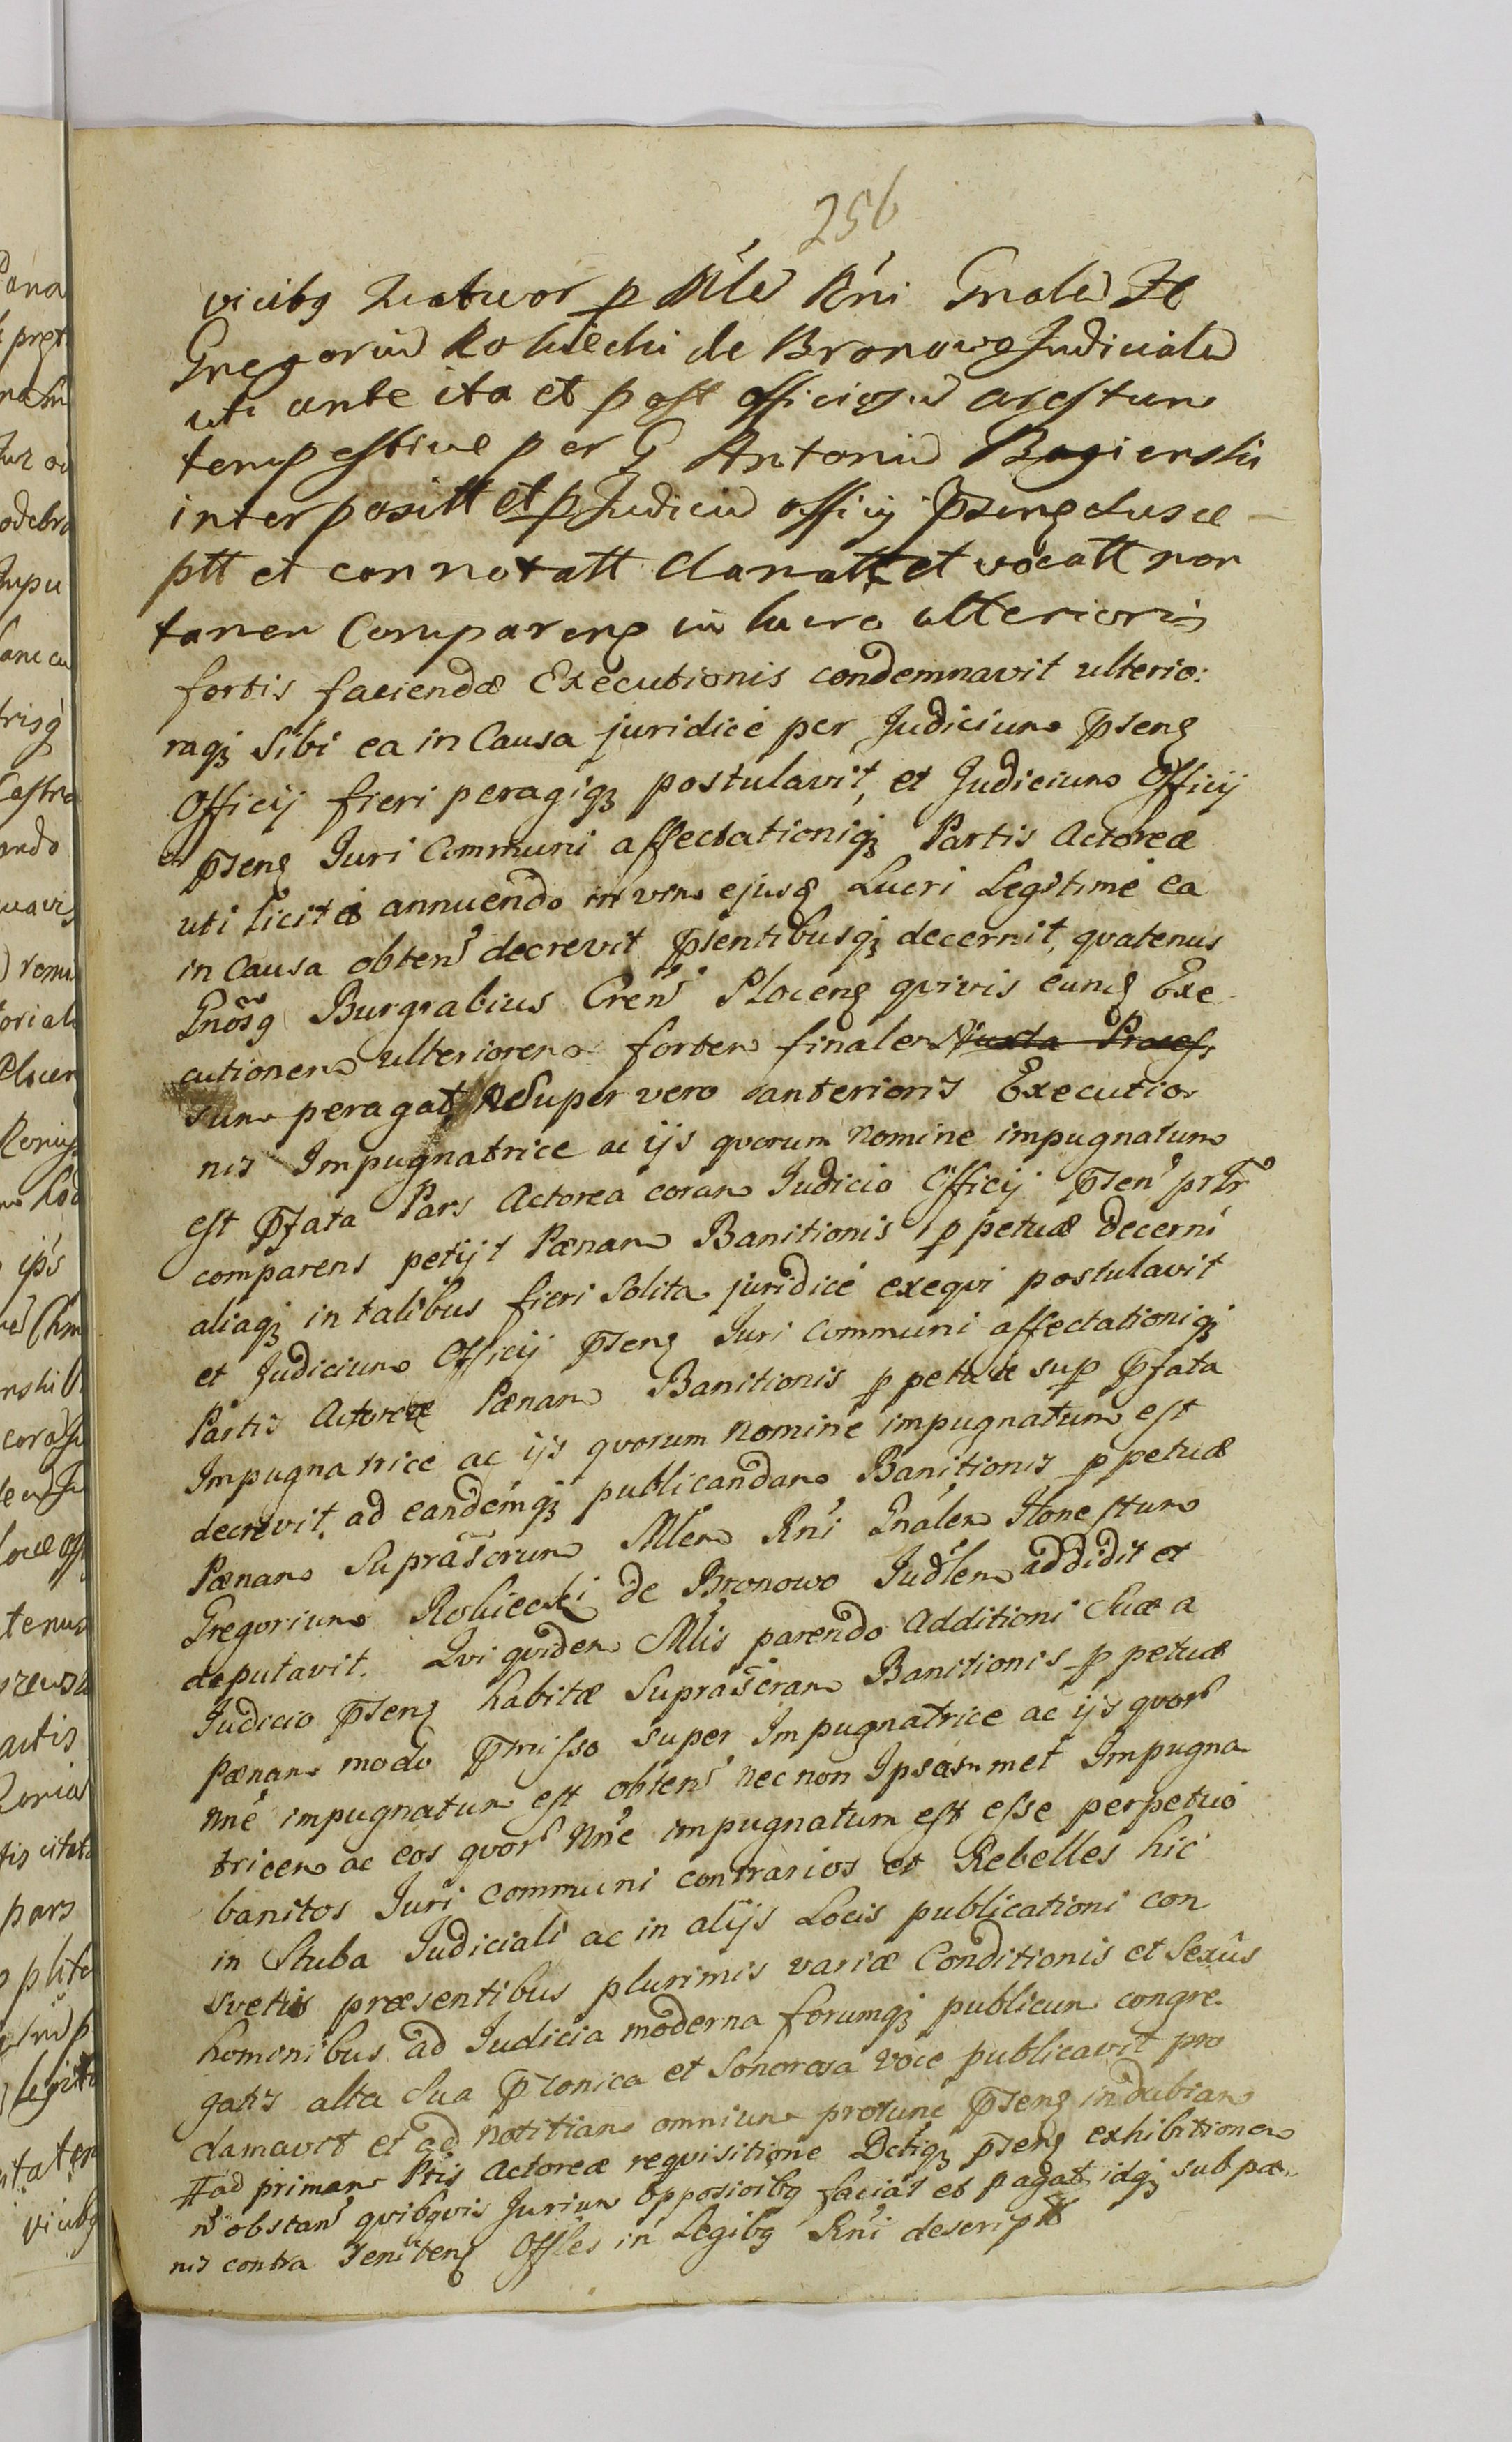 256
vicibg quatuor p Mle Rni Gnale H
Gregoriu Robiecki de Bronowo Judiciale
uti ante ita et post officiosu arestum
tempestive per G Antoniu Bogierski
interpositt et p Judiciu officij psens susce
ptt et connotatt clamatt et vocatt non
tamen comparens in lucro ulterioris
fortis faciendæ Executionis condemnavit ulterio:
raq Sibi ea in Causa juridicè per Judicium psens
Officij fieri peragiq postulavit, et Judicium Officij
psens Juri Communi affectationiq Partis Actoreæ
uti licitæ annuendo in vim ejusd Lucri Legitimè ea
in Causa obten decrevit psentibusq decernit, qvatenus
Gnosg Burgrabius Cren Plocens qvivis eund Exe
cutionem ulteriorem fortem finalem juxta Proces
sum peragat. Super vero anterioris Executio
nis Impugnatrice ac ijs qvorum nomine impugnatum
est pfata Pars Actorea coram Judicio Officij psen prtr
comparens petijt Pænam Banitionis ppetuæ decerni
aliaq in talibus fieri Solita juridicè exeqvi postulavit
et Judicium Officij psens Juri Communi affectationiq
Partis Actoreæ Pænam Banitionis ppetuæ sup pfata
Impugnatrice ac ijs qvorum nomine impugnatum est
decrevit. ad eandemq publicandam Banitionis ppetuæ
Pænam Suprascrum Mlem Rni Gnalem Honestum
Gregorium Robiecki de Bronowo Judlem addidit et
deputavit. Qvi qvidem Mlis parendo Additioni Suæ a
Judicio psens habitæ Suprascram Banitionis ppetuæ
Pænam modò pmisso super Impugnatrice ac ijs qvor
nne impugnatum est obten nec non Ipsasmet Impugna
tricem ac eos qvor nne impugnatum est esse perpetuò
banitos Juri Communi contrarios et Rebelles hic
in Stuba Judiciali ac in alijs Locis publicationi con
svetis præsentibus plurimis variæ Conditionis et Sexûs
hominibus ad Judicia moderna forumq publicum congre
gatis alta Sua pconica et Sonorosa voce publicavit pro
clamavit et ad notitiam omnium protunc psens indubiam
# ad primam Ptis Actoreæ reqvisitione Dctiq psens exhibitionem
n obstan qvibqvis Jurium oppositbg faciat et pagat idq sub pæ
nis contra renitens Offles in Legibg Rni descriptt